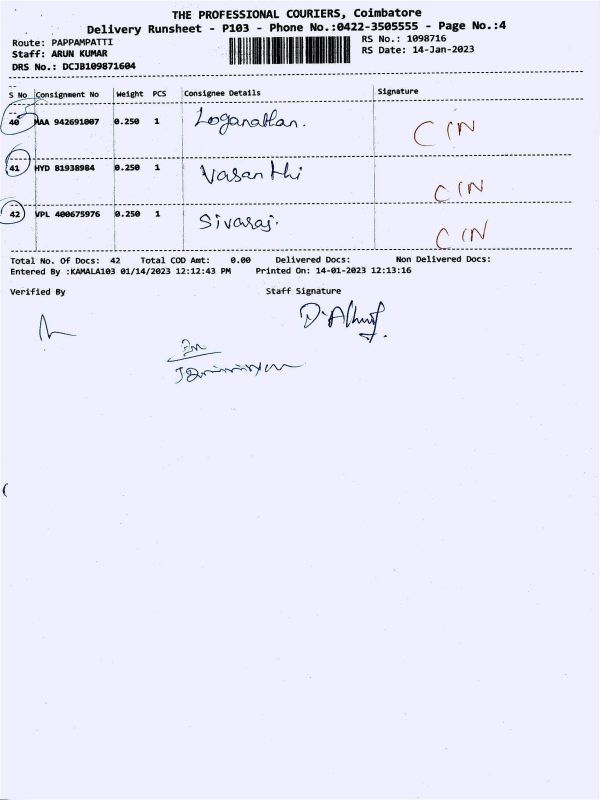 THE PROFESSIONAL COURIERS, Coimbatore
Delivery Runsheet - P103 - Phone No.:0422-3505555 - Page No.:4
Route: PAPPAMPATTI
RS No.: 1098716
Staff: ARUN KUMAR
RS Date: 14-Jan-2023
DRS No.: DCJB109871604
S No Consignment No Weight PCS Consignee Details Signature
40 MAA 942691007 0.250 1 Loganathan. CIN
41 HYD 81938984 0.250 1 Vasanthi CIN
42 VPL 400675976 0.250 1 Sivaraj. CIN
Total No. Of Docs: 42 Total COD Amt: 0.00 Delivered Docs: Non Delivered Docs:
Entered By :KAMALA103 01/14/2023 12:12:43 PM Printed On: 14-01-2023 12:13:16
Verified By Staff Signature